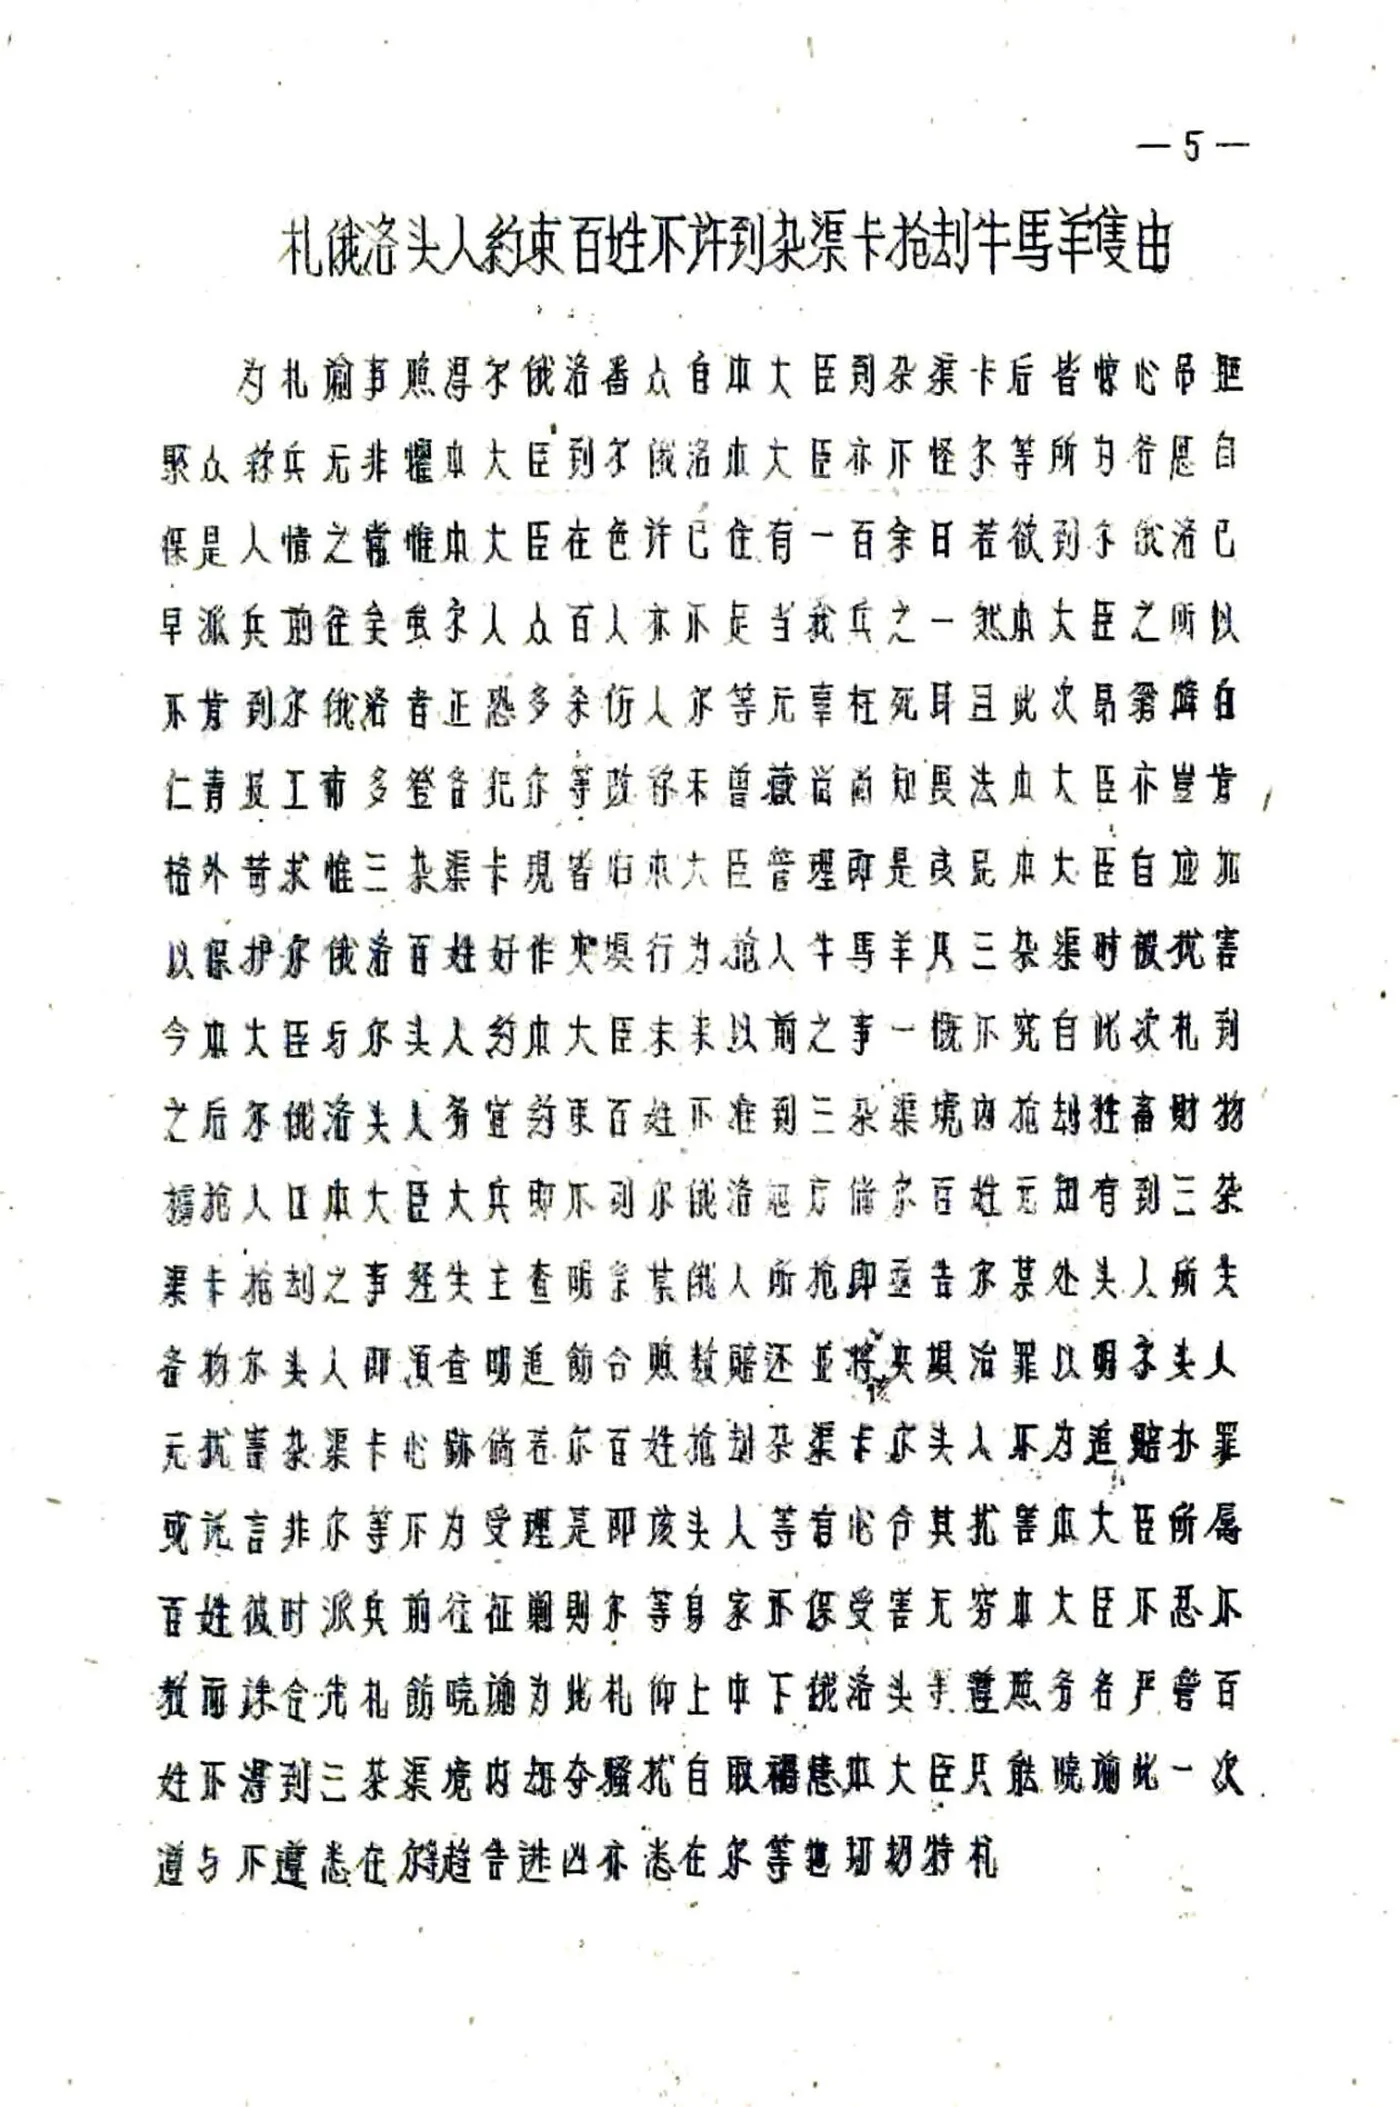 —5—
札俄洛头人約束百姓不许到杂渠卡抢刦牛馬羊隻由
为札谕事照得尔俄洛番众自本大臣到杂渠卡后皆惊心吊胆
聚众称兵无非惧本大臣到尔俄洛本大臣亦不怪尔等所为各愿自
保是人情之常惟本大臣在色许已住有一百余日若欲到尔俄洛已
早派兵前往矣虽尔人众百人亦不足当我兵之一然本大臣之所以
不肯到尔俄洛者正恐多杀伤人尔等无辜枉死耳且此次昂翁降白
仁青 工布多登各把尔等 称未曾藏 尚知畏法本大臣亦岂肯
格外苛求惟三杂渠卡現皆归本大臣管理即是良民本大臣自应加
以保护尔俄洛百姓好作夹坝行为抢人牛馬羊只三杂渠时被扰害
今本大臣与尔头人约本大臣未来以前之事一概不究自此次札到
之后尔俄洛头人务宜约束百姓不准到三杂渠境内抢劫牲畜财物
掳抢人口本大臣大兵即不到尔俄洛地方倘尔百姓无知有到三杂
渠卡抢劫之事经失主查明系某俄人所抢即至告尔某处头人所失
各物尔头人即須查明追飭令照数賠还並将夹坝治罪以明尔头人
无扰害杂渠卡心跡倘若尔百姓抢劫杂渠卡尔头人不为追賠办罪
或託言非尔等不为受理是即该头人等有心令其扰害本大臣所属
百姓彼时派兵前往征剿則尔等身家不保受害无穷本大臣不忍不
教而诛合先札飭晓諭为此札仰上中下俄洛头 遵照务各严管百
姓不得到三杂渠境内劫夺騷扰自取禍 本大臣只能晓諭此一次
遵与不遵悉在尔等趋吉避凶亦悉在尔等 切特札